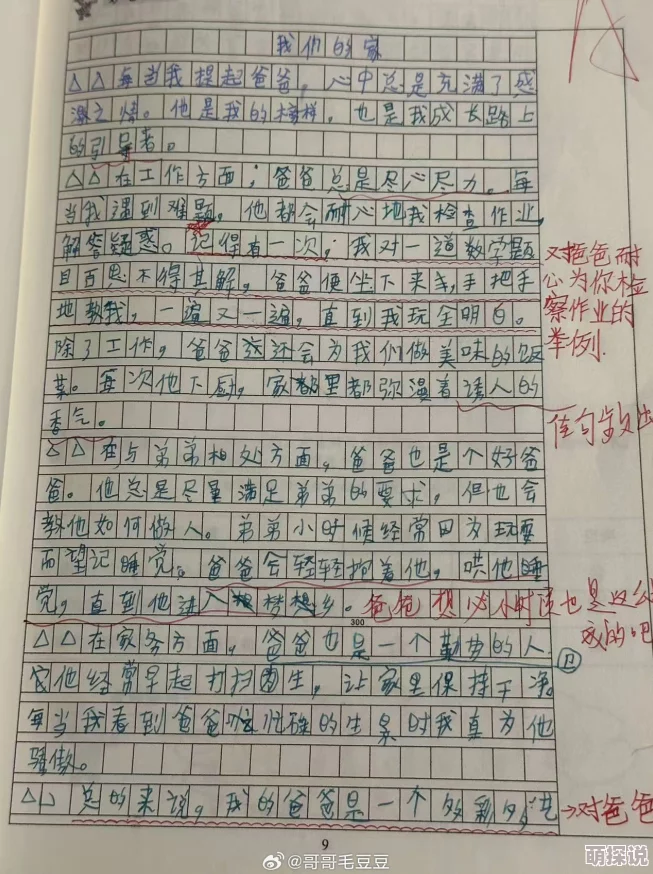 我们的家
△△每当我提起爸爸，心中总是充满了感
激之情。他是我的榜样，也是我成长路上
的引导者。
△△在工作方面；爸爸总是尽心尽力。每
当我遇到难题，他都会耐心地我检查作业，
解答疑惑。记得有一次，我对一道数学题
目百思不得其解，爸爸便坐下来，手把手
地教我，一遍又一遍，直到我玩全明白。
对爸爸耐
心为你检
察作业的
举例.
除了工作，爸爸还会为我们做美味的饭
菜。每次他下厨，家里都弥漫着诱人的
香气。
佳句
△△在与弟弟相处方面，爸爸也是个好爸
爸。他总是尽量满足弟弟的要求，但也会
教他如何做人。弟弟小时候经常因为玩耍
而望记睡觉。爸爸会轻轻抱着他，哄他睡
觉，直到他进入梦乡。爸爸想必小时候也是这么
成的吧
300
△△在家务方面，爸爸也是一个勤劳的人
他经常早起打扫生，让家里保持干净。
卫
每当我看到爸爸忙碌的生景时我真为他
骄傲。
△△总的来说，我的爸爸是一个多彩多
→对爸爸
9
@哥哥毛豆豆
萌探说